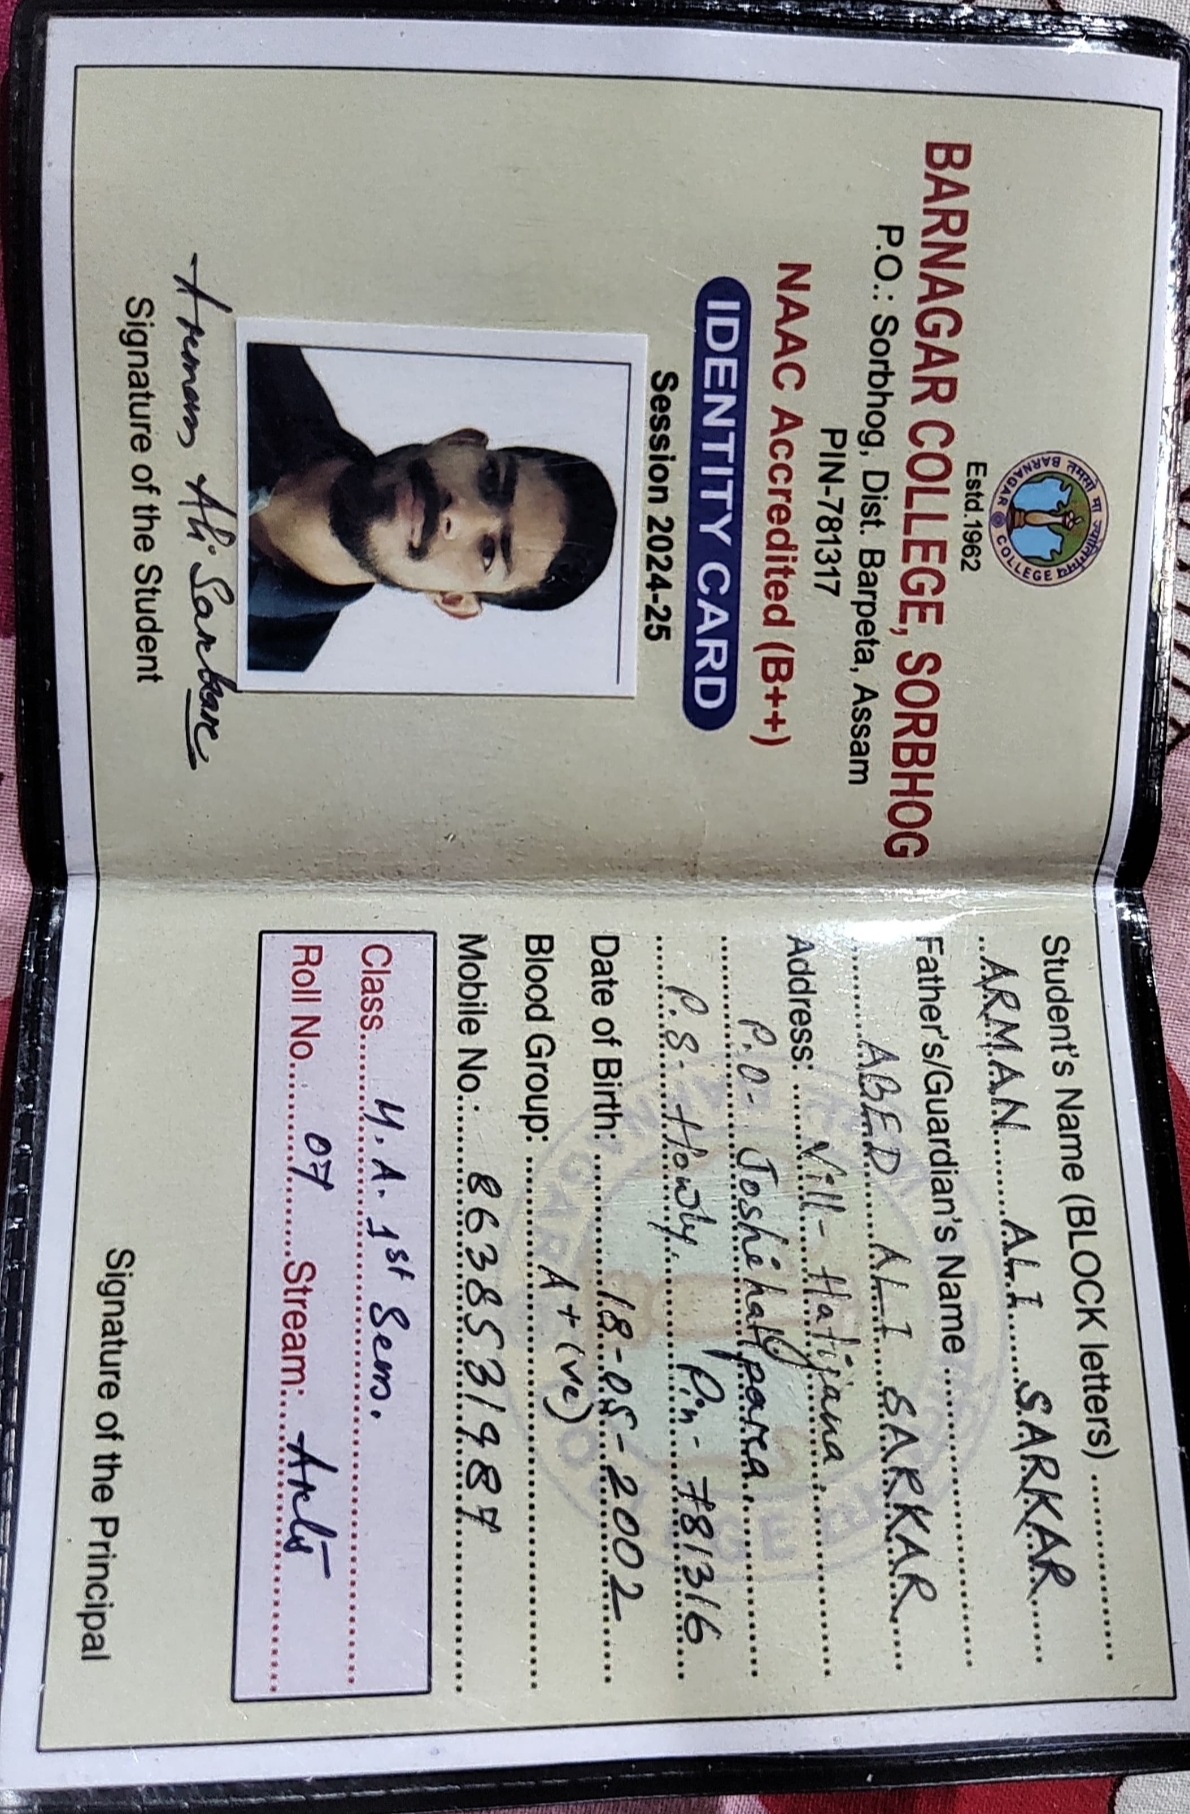 तमसो मा ज्योतिर्गमय
BARNAGAR COLLEGE
Estd.1962
BARNAGAR COLLEGE, SORBHOG
P.O.: Sorbhog, Dist. Barpeta, Assam
PIN-781317
NAAC Accredited (B++)
IDENTITY CARD
Session 2024-25
Arman Ali Sarkar
Signature of the Student
Student's Name (BLOCK letters)
ARMAN ALI SARKAR
Father's/Guardian's Name
ABED ALI SARKAR
Address: Vill- Hatijana
P.O- Joshihatipara
P.S- Howly. Pin- 781316
Date of Birth: 18-05-2002
Blood Group: A+(ve)
Mobile No.: 8638531987
Class M.A. 1st Sem.
Roll No. 07 Stream: Arts
Signature of the Principal